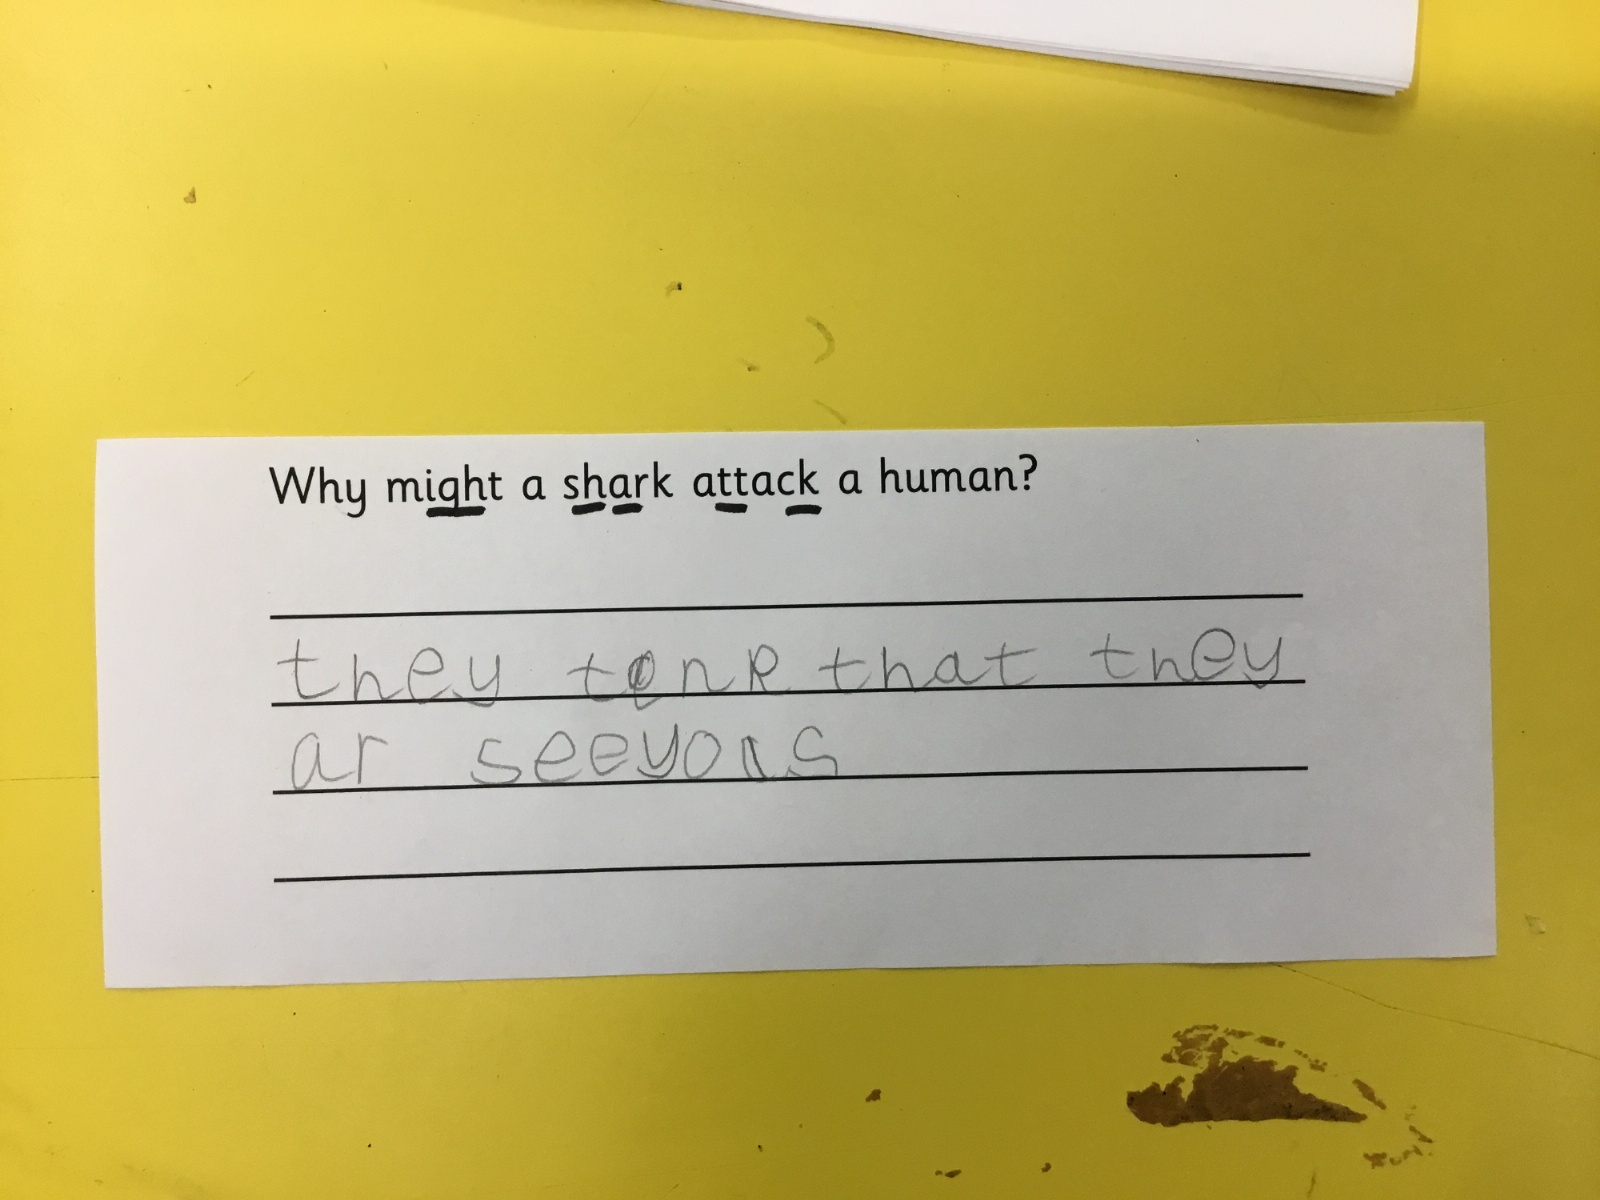 Why might a shark attack a human?
they tink that they
ar seeyols